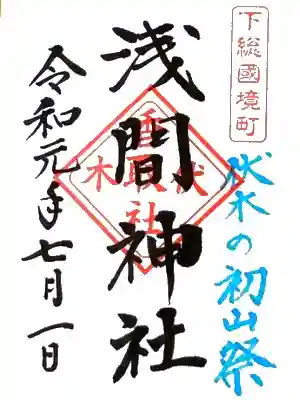 下総國境町
伏木の初山祭
浅間神社
伏木
香取
社
令和元年七月一日